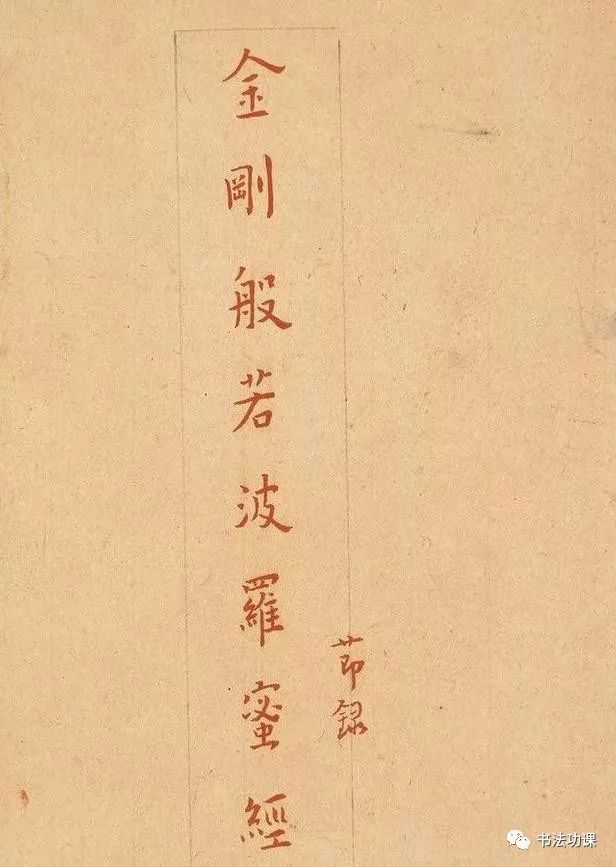 金剛般若波羅蜜經
節錄
书法功课